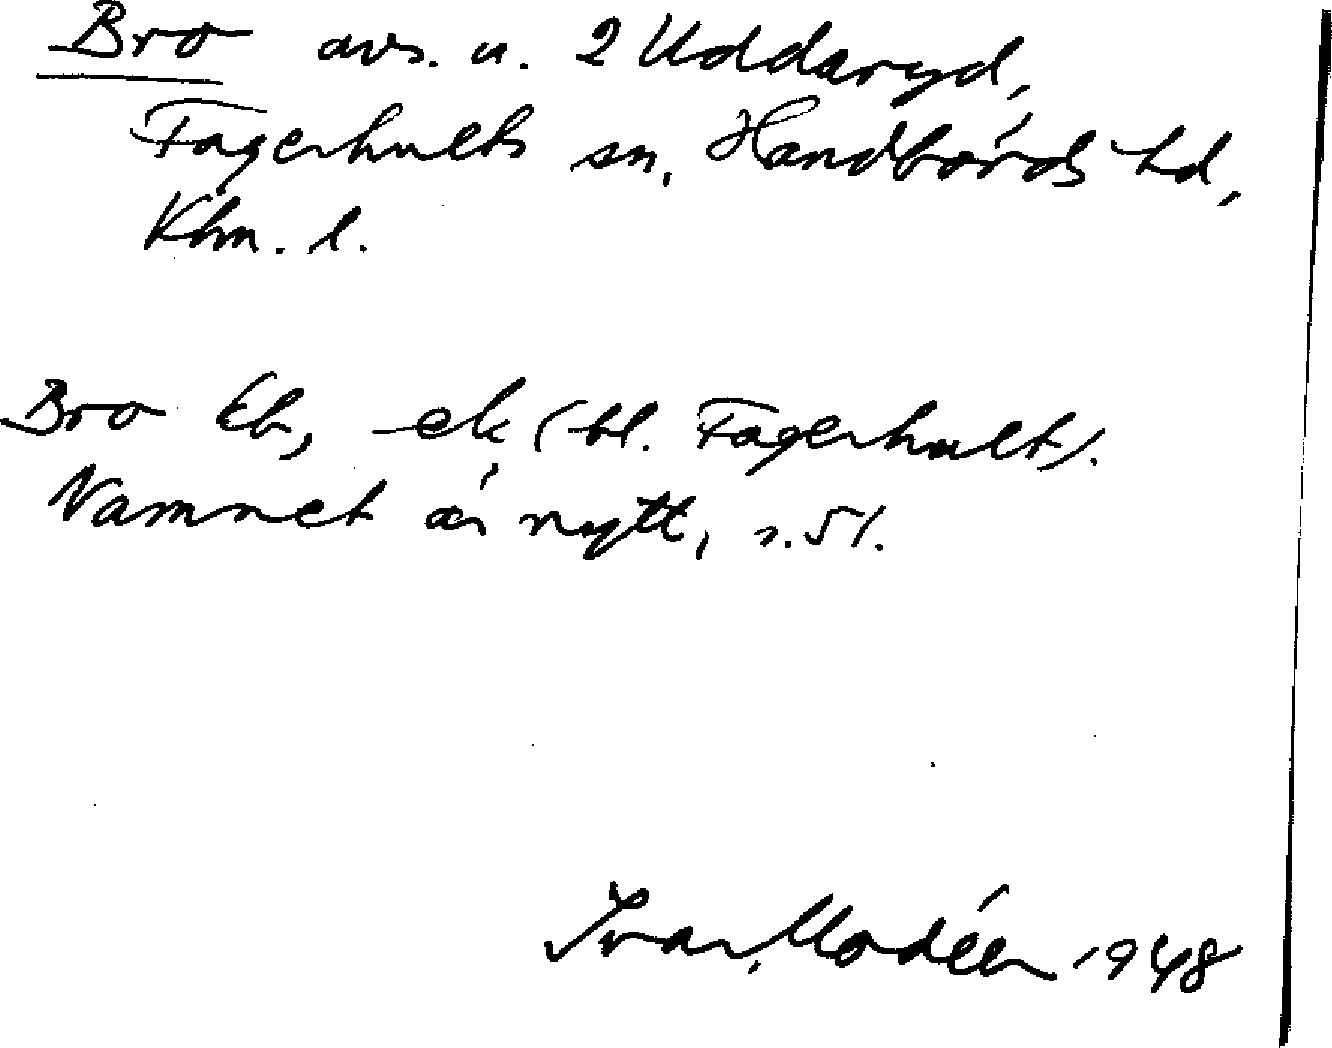 Bro avs. u. 2 Uddaryd,
Fagerhults sn, Handbörds hd,
Klm. l.
Bro Eb, ek (bl. Fagerhult).
Namnet är nytt, s. 51.
Ivar Modéer 1948